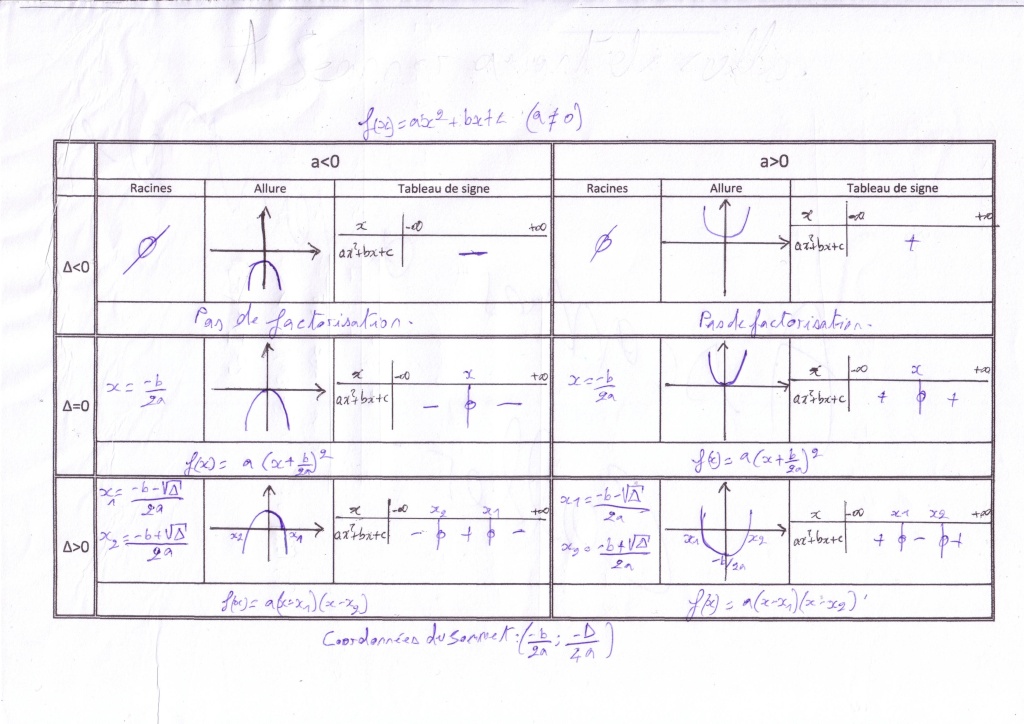 f(x) = ax² + bx + c (a ≠ 0)
a<0 a>0
Racines Allure Tableau de signe Racines Allure Tableau de signe
Δ<0
∅
x -∞ +∞
ax²+bx+c −
∅
x -∞ +∞
ax²+bx+c +
Pas de factorisation.
Pas de factorisation.
Δ=0
x = -b/2a
x -∞ x +∞
ax²+bx+c − 0 −
x = -b/2a
x -∞ x +∞
ax²+bx+c + 0 +
f(x) = a (x + b/2a)²
f(x) = a (x + b/2a)²
Δ>0
x1 = -b-√Δ/2a
x2 = -b+√Δ/2a
x2 x1
x -∞ x2 x1 +∞
ax²+bx+c − 0 + 0 −
x1 = -b-√Δ/2a
x2 = -b+√Δ/2a
x1 x2
-b/2a
x -∞ x1 x2 +∞
ax²+bx+c + 0 − 0 +
f(x) = a(x-x1)(x-x2)
f(x) = a(x-x1)(x-x2)
Coordonnées du sommet : (-b/2a ; -Δ/4a)